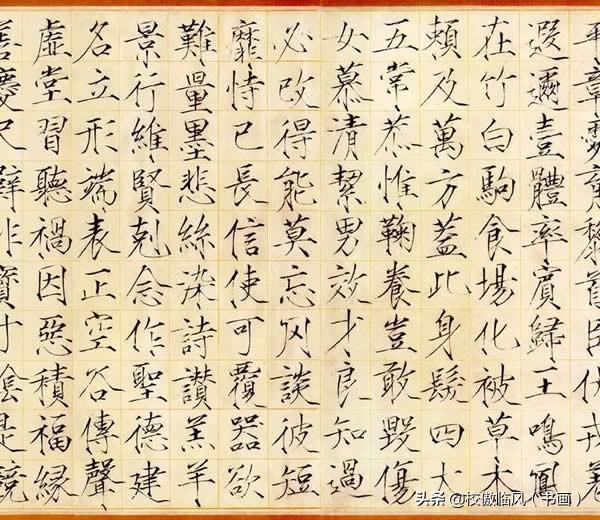 平章愛育黎首臣伏戎羌
遐邇壹體率賓歸王鳴鳳
在竹白駒食場化被草木
賴及萬方蓋此身髮四大
五常恭惟鞠養豈敢毀傷
女慕清絜男效才良知過
必改得能莫忘罔談彼短
靡恃已長信使可覆器欲
難量墨悲絲染詩讚羔羊
景行維賢剋念作聖德建
名立形端表正空谷傳聲
虛堂習聽禍因惡積福緣
善慶尺璧非寶寸陰是競
头条 @校傲临风(书画)